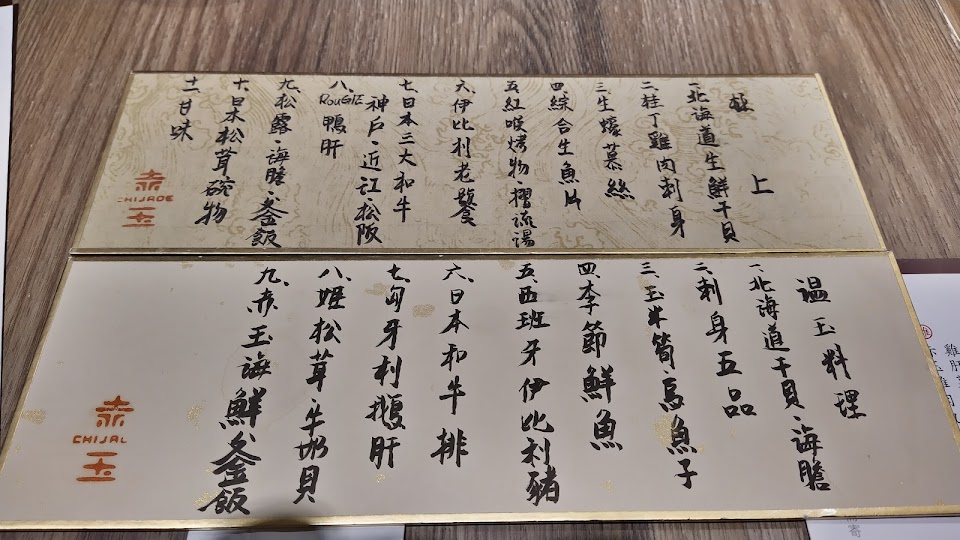 極上
一、北海道生鮮干貝
二、桂丁雞肉刺身
三、生蠔慕絲
四、綜合生魚片
五、紅喉烤物·摺流湯
六、伊比利老饕
七、日本三大和牛
神戶·近江·松阪
八、ROUGIE鴨肝
九、松露·海膽·釜飯
十、日本松茸碗物
十一、甘味
赤
CHIJADE
玉
溫玉料理
一、北海道干貝·海膽
二、刺身五品
三、玉米筍·烏魚子
四、季節鮮魚
五、西班牙伊比利豬
六、日本和牛排
七、匈牙利鵝肝
八、姬松茸·牛奶貝
九、赤玉海鮮釜飯
赤
玉
寄